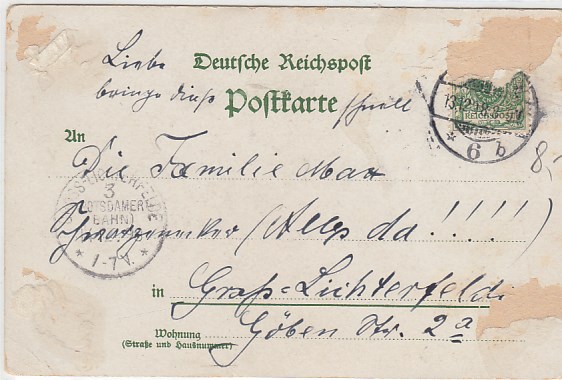 Liebe
Deutsche Reichspost
bringe diese schnell
Postkarte
13.12.
REICHSPOST
* 6 b
An
Die Familie Max
(Alles da!!!!)
GROSS-LICHTERFELDE
3
(POTSDAMER
BAHN)
* 1-7V. *
in Groß-Lichterfelde
Wohnung Göben Str. 2a
(Straße und Hausnummer)